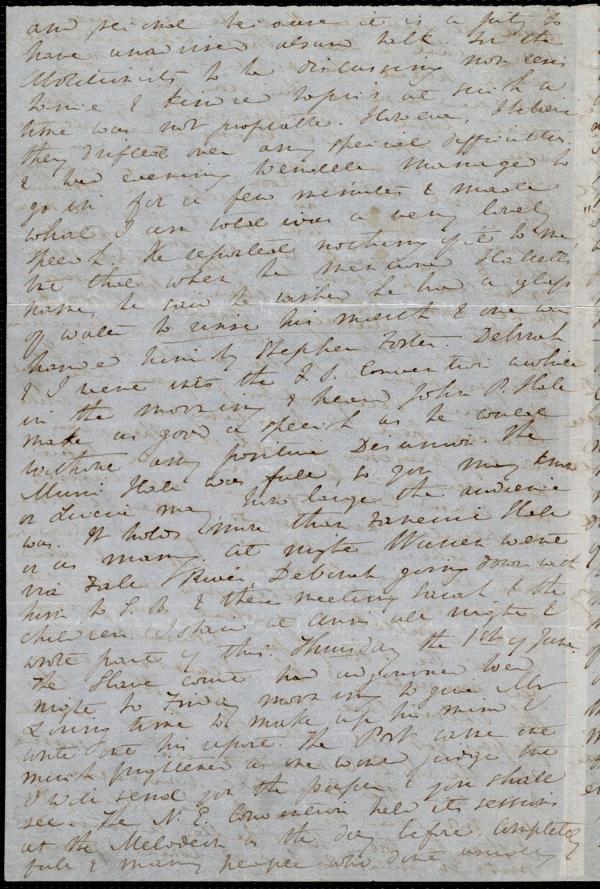 and period because it is a pity to
have unadvised absurd talk. For the
Abolitionists to be discussing non resis
tance & kindred topics at such a
time was not profitable. However, I believe
they drifted over any special difficulties
& Wed evening Wendell managed to
go in for a few minutes & made
what I am told was a very lovely
speech. He reported nothing of it to me,
but that when he mentioned Hallett's
name, he said he wished he had a glass
of water to rinse his mouth & one was
handed him by Stephen Foster. Deborah
& I went into the F. S. Convention awhile
in the morning & heard John P. Hale
make as good a speech as he could
without any positive Disunion. The
Music Hall was full, so you may know
or Lucia may, how large the audience
was. It holds more than Faneuil Hall
or as many. At night Warren went
via Fall River, Deborah going down with
him to N. B. & there meeting Sarah & the
children. I staid at Ann's all night &
wrote part of this. Thursday the 1st of June.
The Slave case had adjourned Wed
night to Friday morning to give Mr
Loring time to make up his mind &
write out his report. The Post came out
much frightened as one would judge but
I will send for the paper & you shall
see. The N. E. Convention held its sessions
at the Melodeon as the day before. Completely
full & many people who dont usually